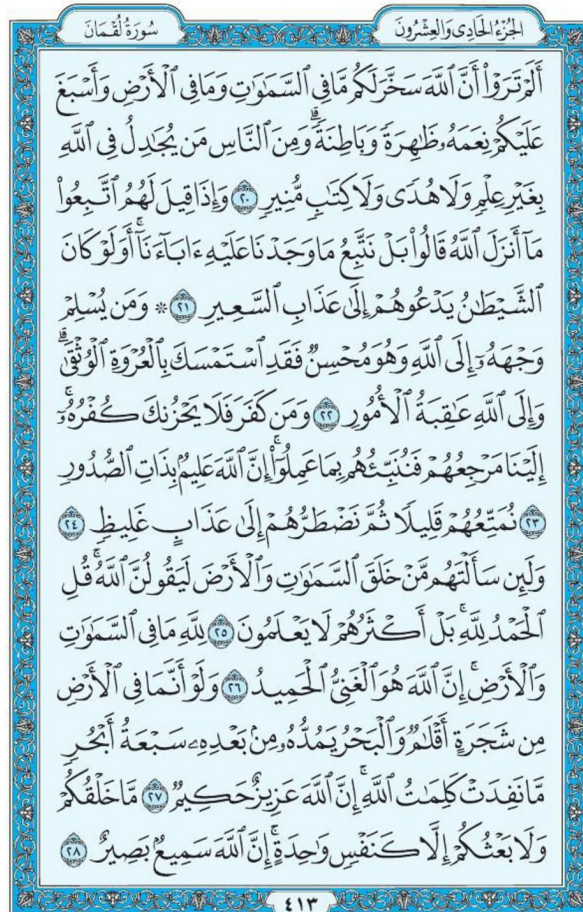 الجُزْءُ الحَادِى وَالعِشْرُونَ
سُورَةُ لُقْمَانَ
أَلَمْ تَرَوْا۟ أَنَّ ٱللَّهَ سَخَّرَ لَكُم مَّا فِى ٱلسَّمَٰوَٰتِ وَمَا فِى ٱلْأَرْضِ وَأَسْبَغَ
عَلَيْكُمْ نِعَمَهُۥ ظَٰهِرَةً وَبَاطِنَةً ۗ وَمِنَ ٱلنَّاسِ مَن يُجَٰدِلُ فِى ٱللَّهِ
بِغَيْرِ عِلْمٍ وَلَا هُدًى وَلَا كِتَٰبٍ مُّنِيرٍ ٢٠ وَإِذَا قِيلَ لَهُمُ ٱتَّبِعُوا۟
مَآ أَنزَلَ ٱللَّهُ قَالُوا۟ بَلْ نَتَّبِعُ مَا وَجَدْنَا عَلَيْهِ ءَابَآءَنَآ ۚ أَوَلَوْ كَانَ
ٱلشَّيْطَٰنُ يَدْعُوهُمْ إِلَىٰ عَذَابِ ٱلسَّعِيرِ ٢١ ۞ وَمَن يُسْلِمْ
وَجْهَهُۥٓ إِلَى ٱللَّهِ وَهُوَ مُحْسِنٌ فَقَدِ ٱسْتَمْسَكَ بِٱلْعُرْوَةِ ٱلْوُثْقَىٰ ۗ
وَإِلَى ٱللَّهِ عَٰقِبَةُ ٱلْأُمُورِ ٢٢ وَمَن كَفَرَ فَلَا يَحْزُنكَ كُفْرُهُۥٓ ۚ
إِلَيْنَا مَرْجِعُهُمْ فَنُنَبِّئُهُم بِمَا عَمِلُوٓا۟ ۚ إِنَّ ٱللَّهَ عَلِيمٌۢ بِذَاتِ ٱلصُّدُورِ
٢٣ نُمَتِّعُهُمْ قَلِيلًا ثُمَّ نَضْطَرُّهُمْ إِلَىٰ عَذَابٍ غَلِيظٍ ٢٤
وَلَئِن سَأَلْتَهُم مَّنْ خَلَقَ ٱلسَّمَٰوَٰتِ وَٱلْأَرْضَ لَيَقُولُنَّ ٱللَّهُ ۚ قُلِ
ٱلْحَمْدُ لِلَّهِ ۚ بَلْ أَكْثَرُهُمْ لَا يَعْلَمُونَ ٢٥ لِلَّهِ مَا فِى ٱلسَّمَٰوَٰتِ
وَٱلْأَرْضِ ۚ إِنَّ ٱللَّهَ هُوَ ٱلْغَنِىُّ ٱلْحَمِيدُ ٢٦ وَلَوْ أَنَّمَا فِى ٱلْأَرْضِ
مِن شَجَرَةٍ أَقْلَٰمٌ وَٱلْبَحْرُ يَمُدُّهُۥ مِنۢ بَعْدِهِۦ سَبْعَةُ أَبْحُرٍ
مَّا نَفِدَتْ كَلِمَٰتُ ٱللَّهِ ۗ إِنَّ ٱللَّهَ عَزِيزٌ حَكِيمٌ ٢٧ مَّا خَلْقُكُمْ
وَلَا بَعْثُكُمْ إِلَّا كَنَفْسٍ وَٰحِدَةٍ ۗ إِنَّ ٱللَّهَ سَمِيعٌۢ بَصِيرٌ ٢٨
٤١٣